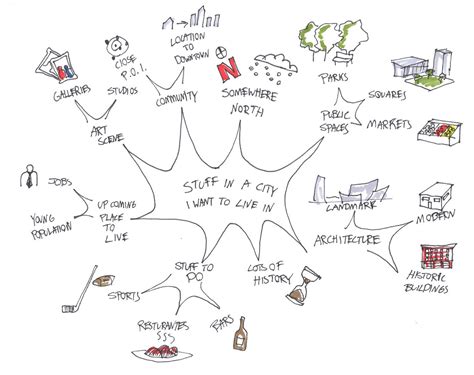 STUFF IN A CITY
I WANT TO LIVE IN
ART
SCENE
GALLERIES
STUDIOS
CLOSE
P.O.I.
COMMUNITY
LOCATION
TO
DOWNTOWN
N
SOMEWHERE
NORTH
PUBLIC
SPACES
PARKS
SQUARES
MARKETS
ARCHITECTURE
LANDMARK
MODERN
HISTORIC
BUILDINGS
LOTS OF
HISTORY
STUFF TO
DO
BARS
RESTURANTES
$$$
SPORTS
UP COMING
PLACE
TO
LIVE
JOBS
YOUNG
POPULATION